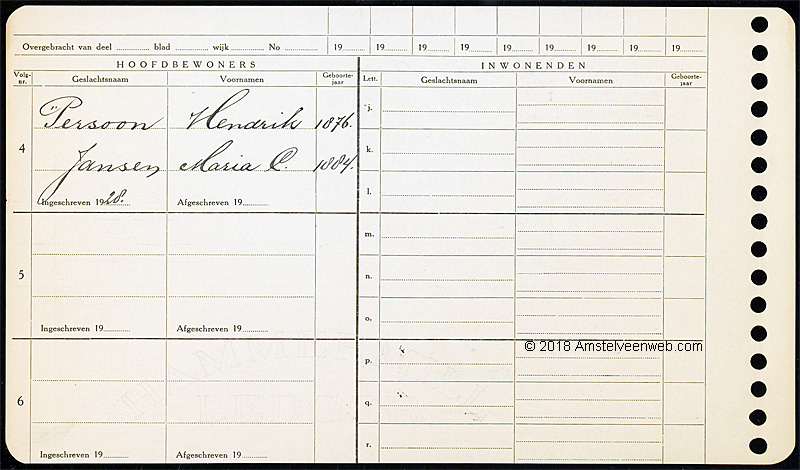 Overgebracht van deel ............ blad ............ wijk ............ No ............ 19...... 19...... 19...... 19...... 19...... 19...... 19...... 19...... 19......
HOOFDBEWONERS INWONENDEN
Volg-nr. Geslachtsnaam Voornamen Geboorte-jaar Lett. Geslachtsnaam Voornamen Geboorte-jaar
4 Persoon Hendrik 1876. j.
Jansen Maria C. 1884. k.
l.
Ingeschreven 1928. Afgeschreven 19............
m.
5 n.
o.
Ingeschreven 19............ Afgeschreven 19............
© 2018 Amstelveenweb.com
p.
6 q.
r.
Ingeschreven 19............ Afgeschreven 19............